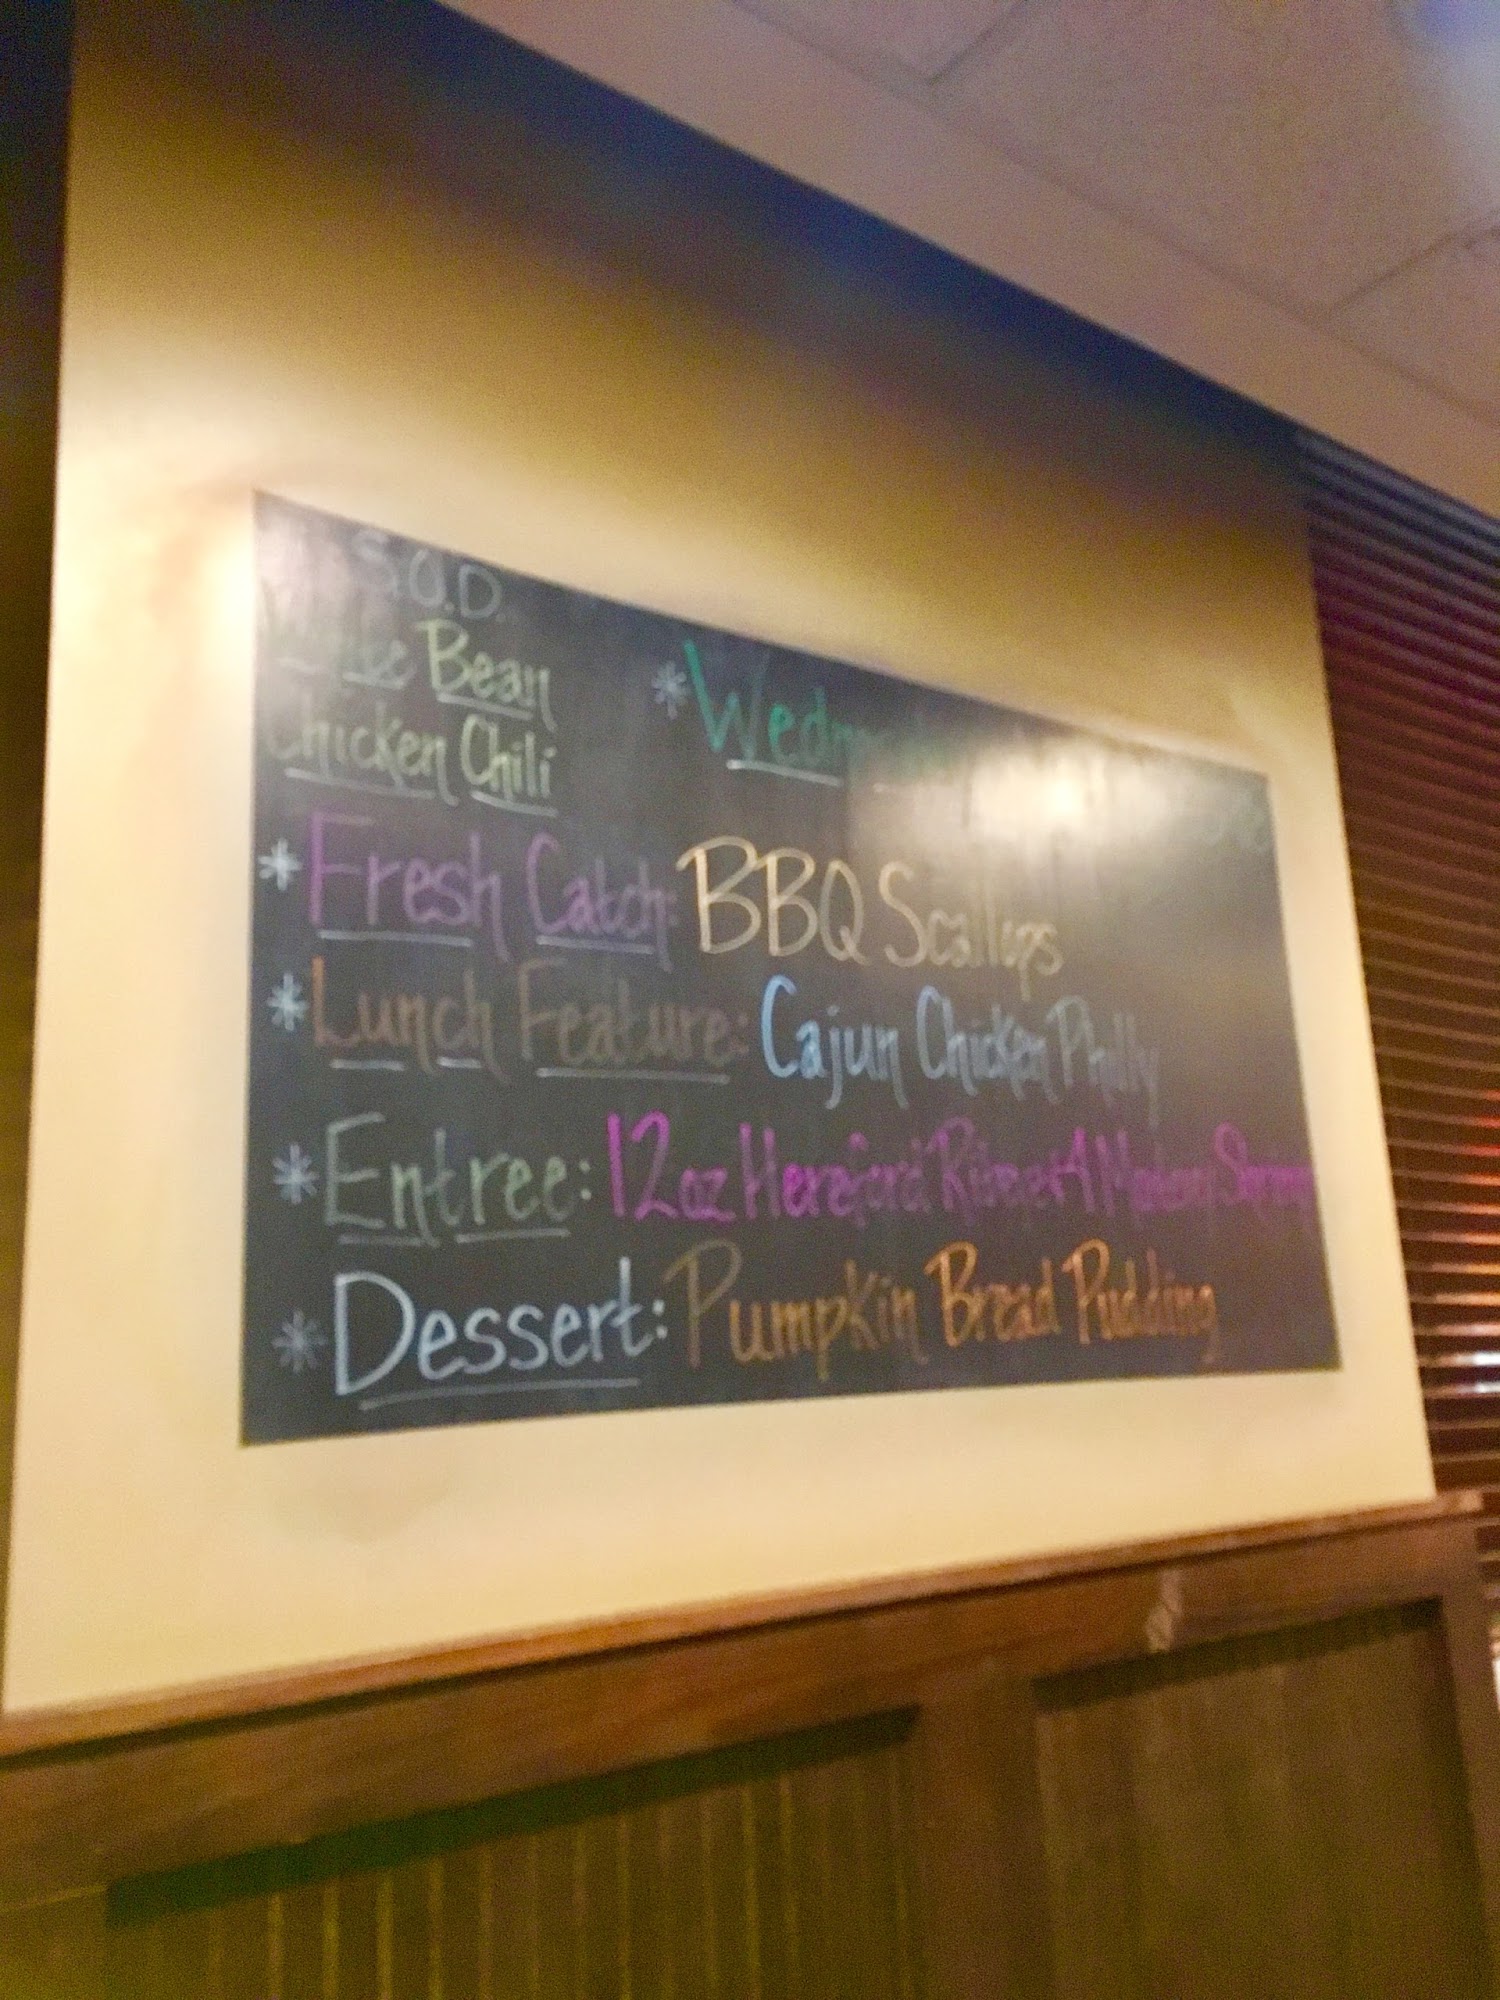 S.O.D.
Bean
Chicken Chili
* Fresh Catch: BBQ Scallops
* Lunch Feature: Cajun Chicken Philly
* Entree: 12oz Hereford Ribeye
* Dessert: Pumpkin Bread Pudding